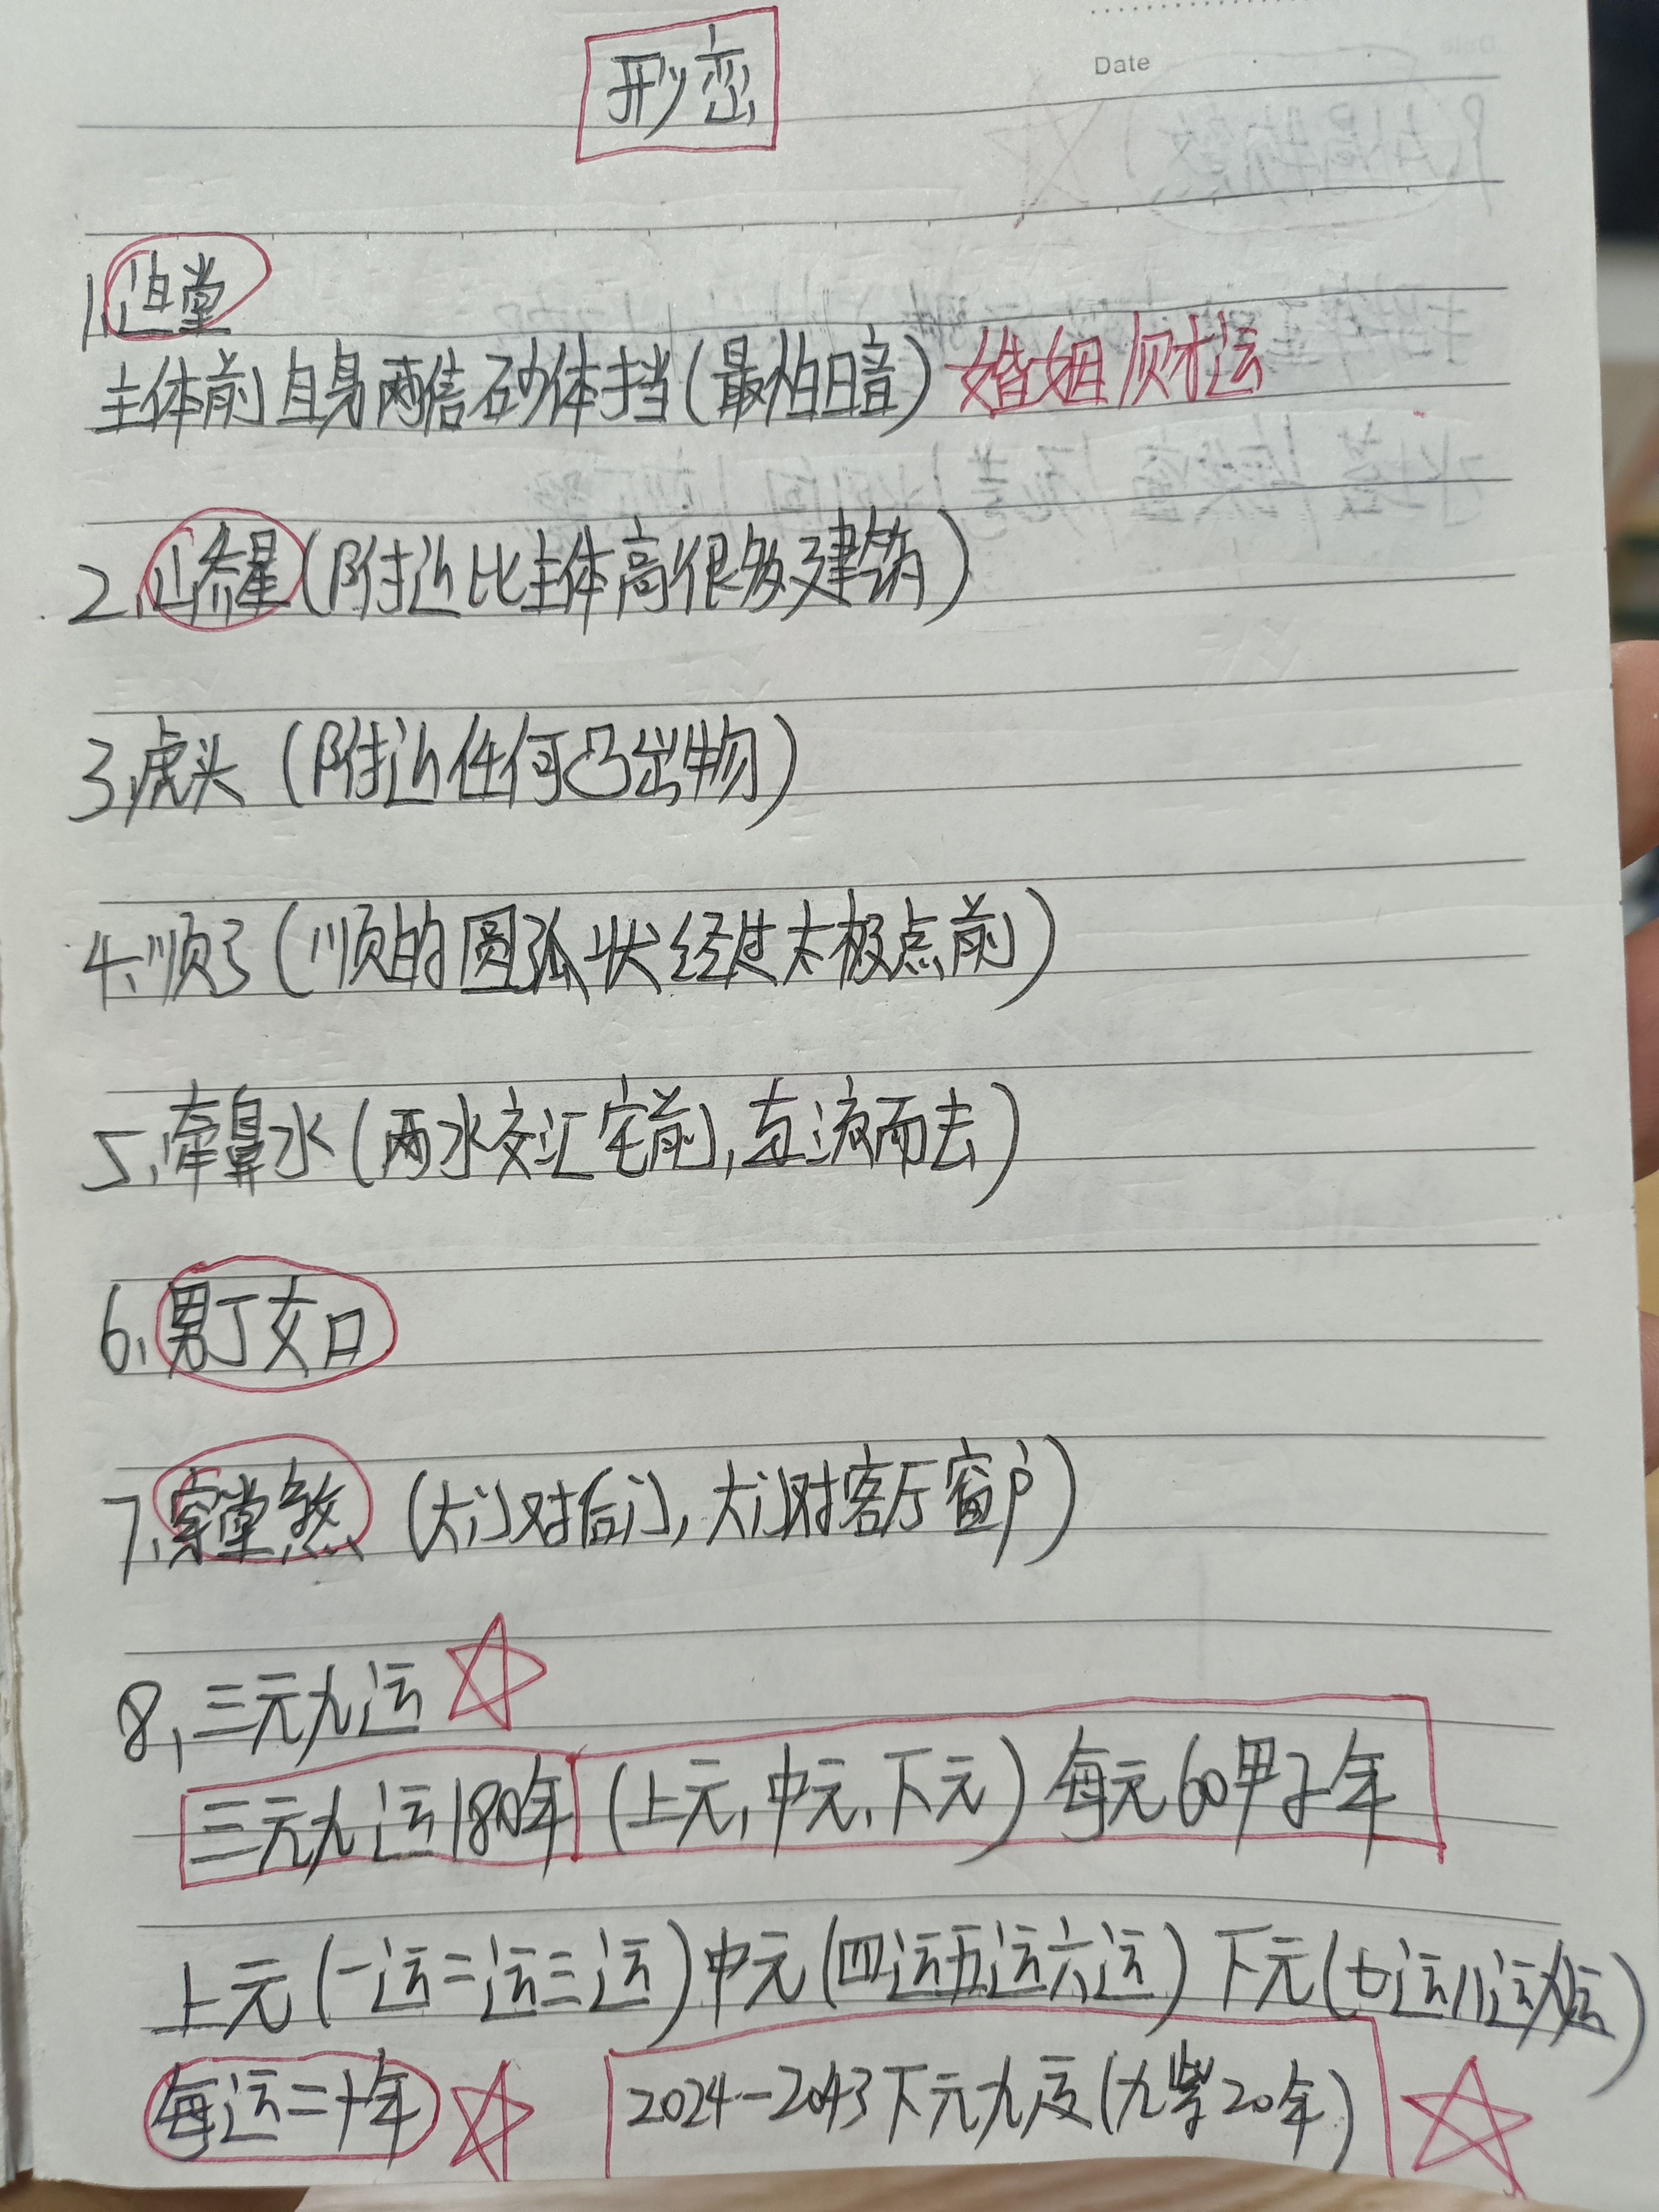 Date
形峦
1.迫堂
主体前自身两倍砂体挡(最怕暗)婚姻财运
2、(附近比主体高很多建筑)
3、虎头(附近任何凸出物)
4、顺弓(顺的圆弧状经过太极点前)
5、牵鼻水(两水交汇宅前,直流而去)
6、男丁女口
7、穿堂煞(大门对后门,大门对客厅窗户)
8、三元九运
三元九运180年(上元,中元、下元)每元60甲子年
上元(一运二运三运)中元(四运五运六运)下元(七运八运九运)
每运二十年 2024-2043下元九(九紫20年)